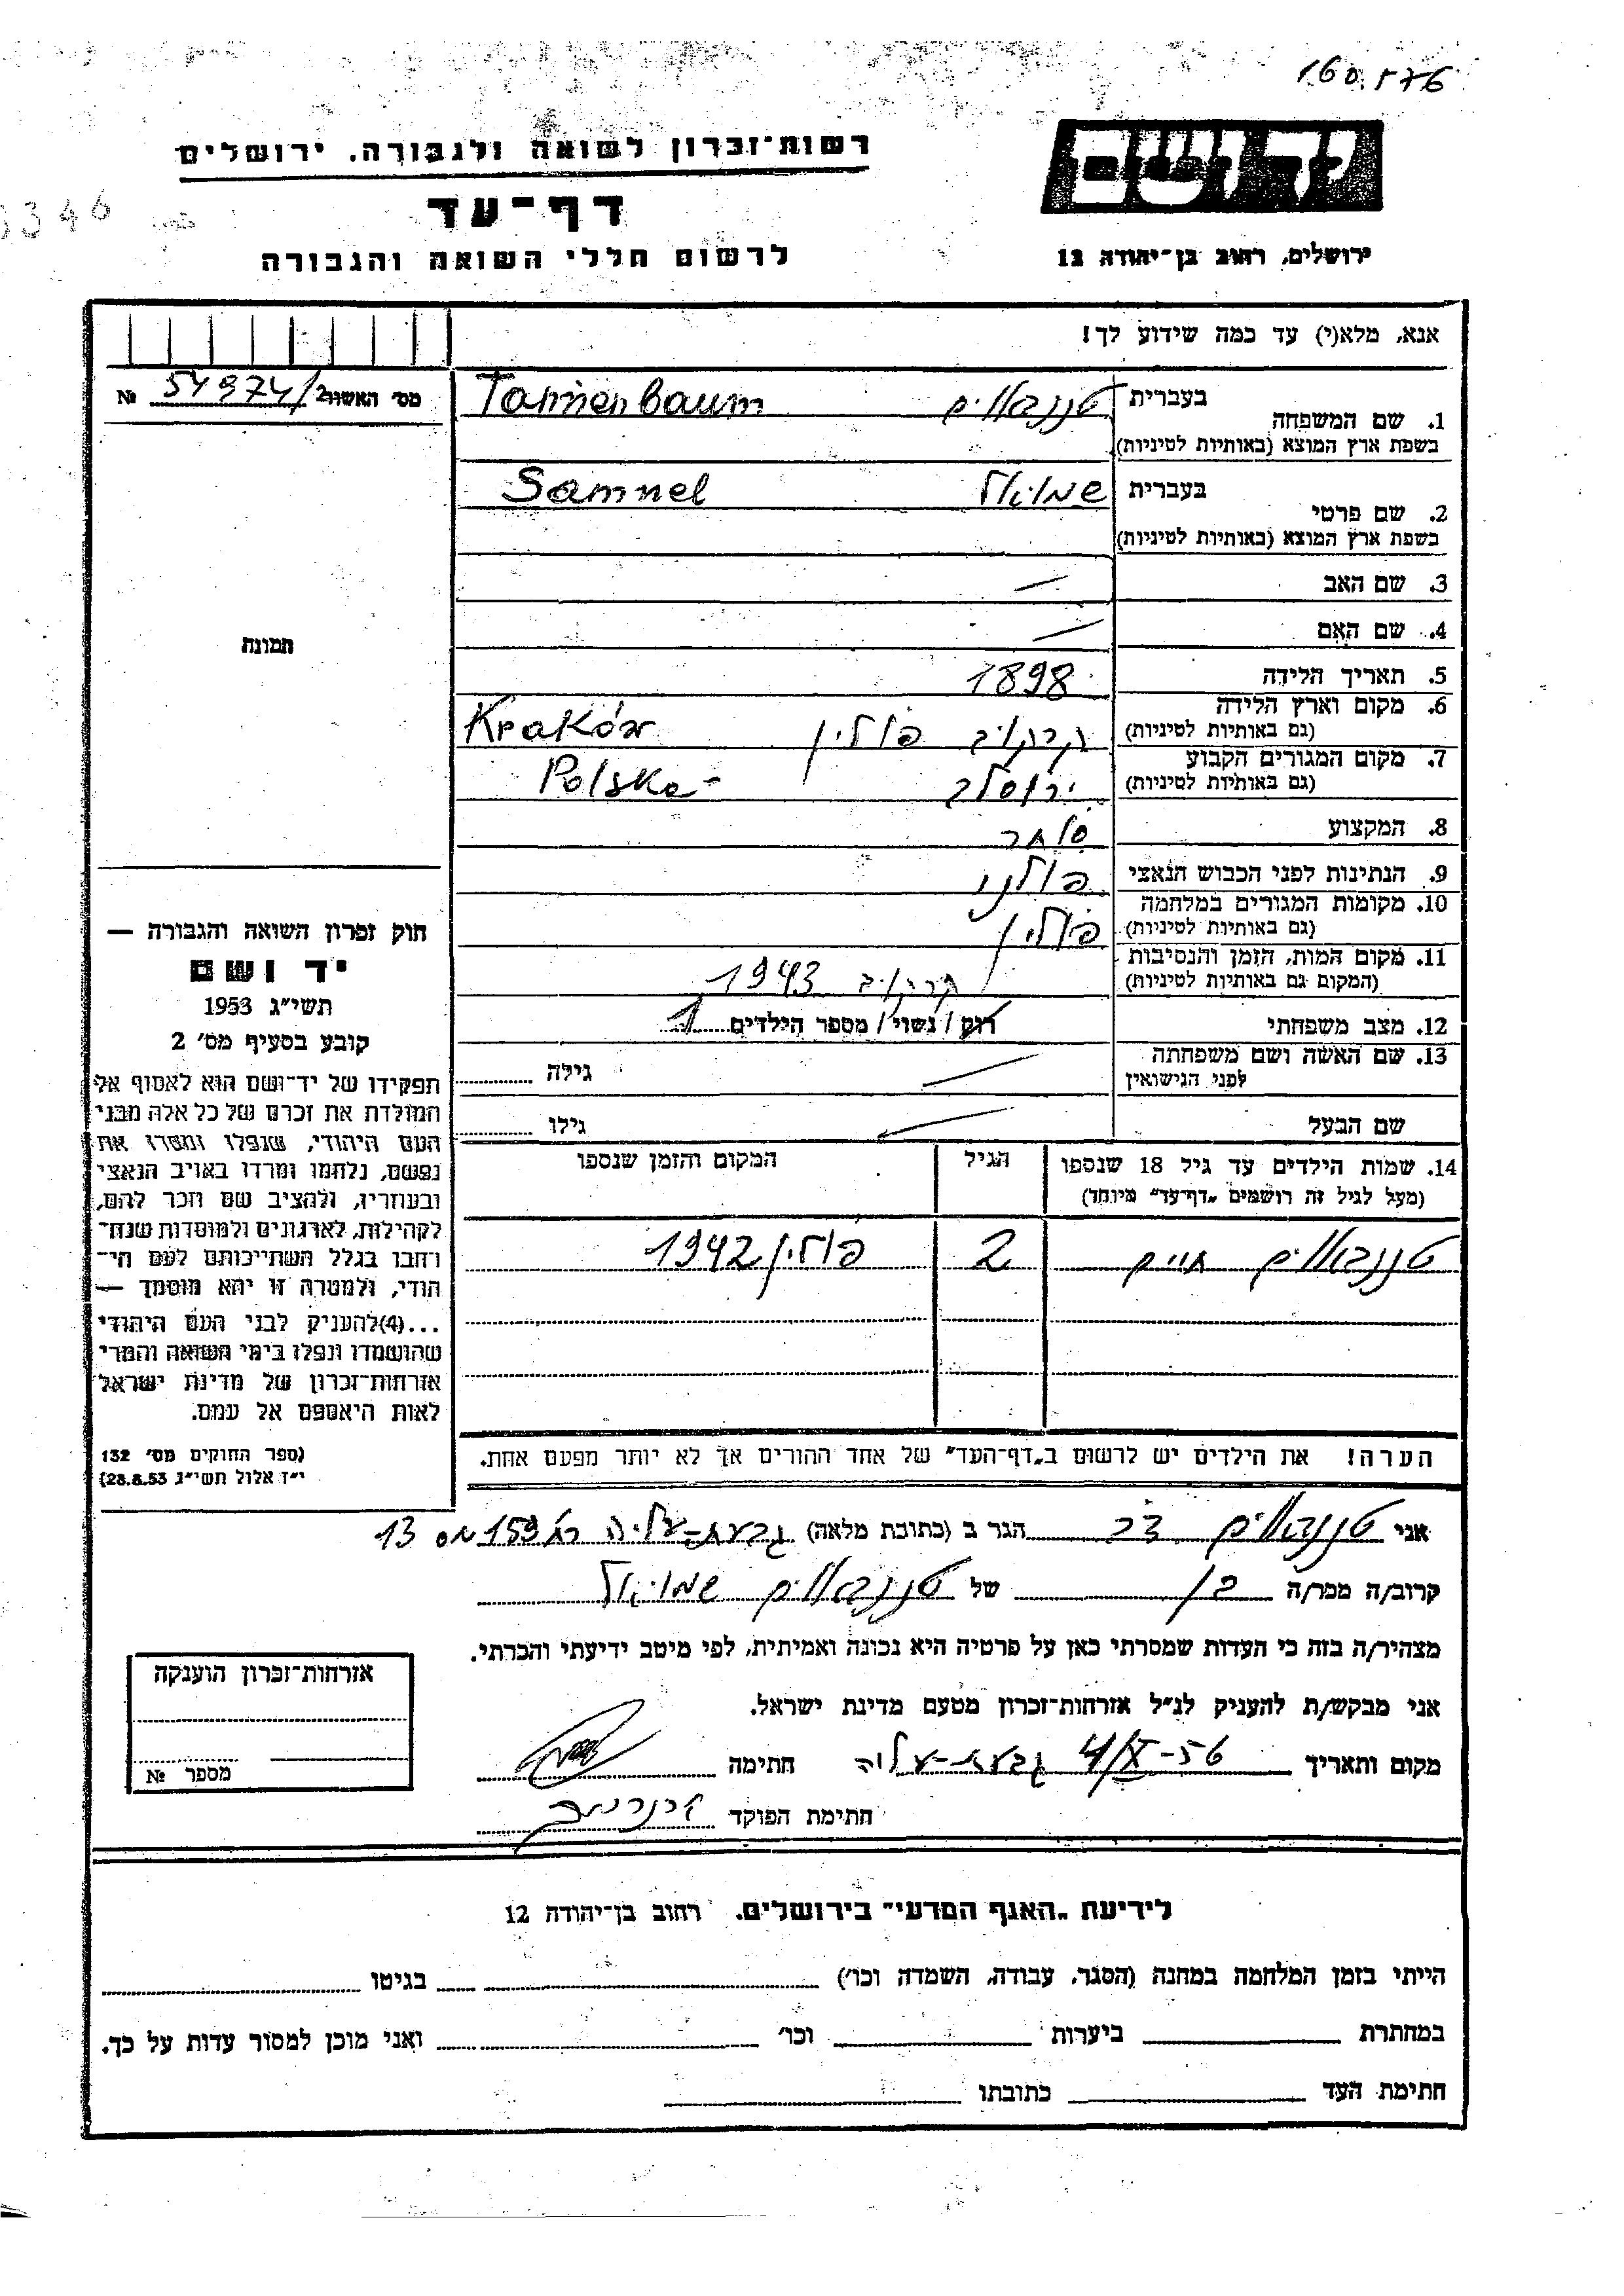 160.576
יד ושם
ירושלים, רחוב בן־יהודה 12
רשות־זכרון לשואה ולגבורה, ירושלים
דף־עד
לרשום חללי השואה והגבורה
346
אנא, מלא(י) עד כמה שידוע לך!
מס' האשור 54974/2 №
1. שם המשפחה בעברית טננבאוים Tannenbaum
בשפת ארץ המוצא (באותיות לטיניות)
2. שם פרטי בעברית שמואל Samuel
בשפת ארץ המוצא (באותיות לטיניות)
3. שם האב —
4. שם האם —
תמונה
5. תאריך הלידה 1898
6. מקום וארץ הלידה קרקוב פולין Kraków
(גם באותיות לטיניות)
7. מקום המגורים הקבוע ירוסלב Polska
(גם באותיות לטיניות)
8. המקצוע סוחר
9. הנתינות לפני הכבוש הנאצי פולני
10. מקומות המגורים במלחמה פולין
(גם באותיות לטיניות)
11. מקום המות, הזמן והנסיבות קרקוב 1943
(המקום גם באותיות לטיניות)
12. מצב משפחתי רוק / נשוי / מספר הילדים 1
13. שם האשה ושם משפחתה לפני הנישואין — גילה
שם הבעל — גילו
14. שמות הילדים עד גיל 18 שנספו הגיל המקום והזמן שנספו
(מעל לגיל זה רושמים „דף־עד" מיוחד)
טננבאוים חיים 2 פולין 1942
הערה! את הילדים יש לרשום ב„דף־העד" של אחד ההורים אך לא יותר מפעם אחת.
חוק זכרון השואה והגבורה —
יד ושם
תשי"ג 1953
קובע בסעיף מס' 2
תפקידו של יד־ושם הוא לאסוף אל
המולדת את זכרם של כל אלה מבני
העם היהודי, שנפלו ומסרו את
נפשם, נלחמו ומרדו באויב הנאצי
ובעוזריו, ולהציב שם וזכר להם,
לקהילות, לארגונים ולמוסדות שנח־
רחבו בגלל השתייכותם לעם הי־
הודי, ולמטרה זו יהא מוסמך —
...(4)להעניק לבני העם היהודי
שהושמדו ונפלו בימי השואה והמרי
אזרחות־זכרון של מדינת ישראל
לאות היאספם אל עמם.
(ספר החוקים מס' 132
י"ז אלול תשי"ג 28.8.53)
אני טננבאוים הגר ב (כתובת מלאה) גבעת-עליה 159 מס 13
קרוב/ה מכר/ה בן של טננבאוים שמואל
מצהיר/ה בזה כי העדות שמסרתי כאן על פרטיה היא נכונה ואמיתית, לפי מיטב ידיעתי והכרתי.
אני מבקש/ת להעניק לנ"ל אזרחות־זכרון מטעם מדינת ישראל.
מקום ותאריך גבעת-עליה 4/X-56 חתימה
חתימת הפוקד
אזרחות־זכרון הוענקה
מספר №
לידיעת „האגף המדעי" בירושלים. רחוב בן־יהודה 12
הייתי בזמן המלחמה במחנה (הסגר, עבודה, השמדה וכו') בגיטו
במחתרת ביערות וכו' ואני מוכן למסור עדות על כך.
חתימת העד כתובתו